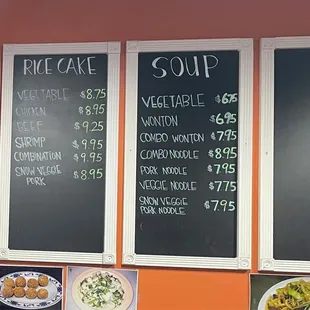 RICE CAKE
VEGETABLE $8.75
CHICKEN $8.95
BEEF $9.25
SHRIMP $9.95
COMBINATION $9.95
SNOW VEGGIE $8.95
PORK
SOUP
VEGETABLE $6.75
WONTON $6.95
COMBO WONTON $7.95
COMBO NOODLE $8.95
PORK NOODLE $7.95
VEGGIE NOODLE $7.75
SNOW VEGGIE
PORK NOODLE $7.95